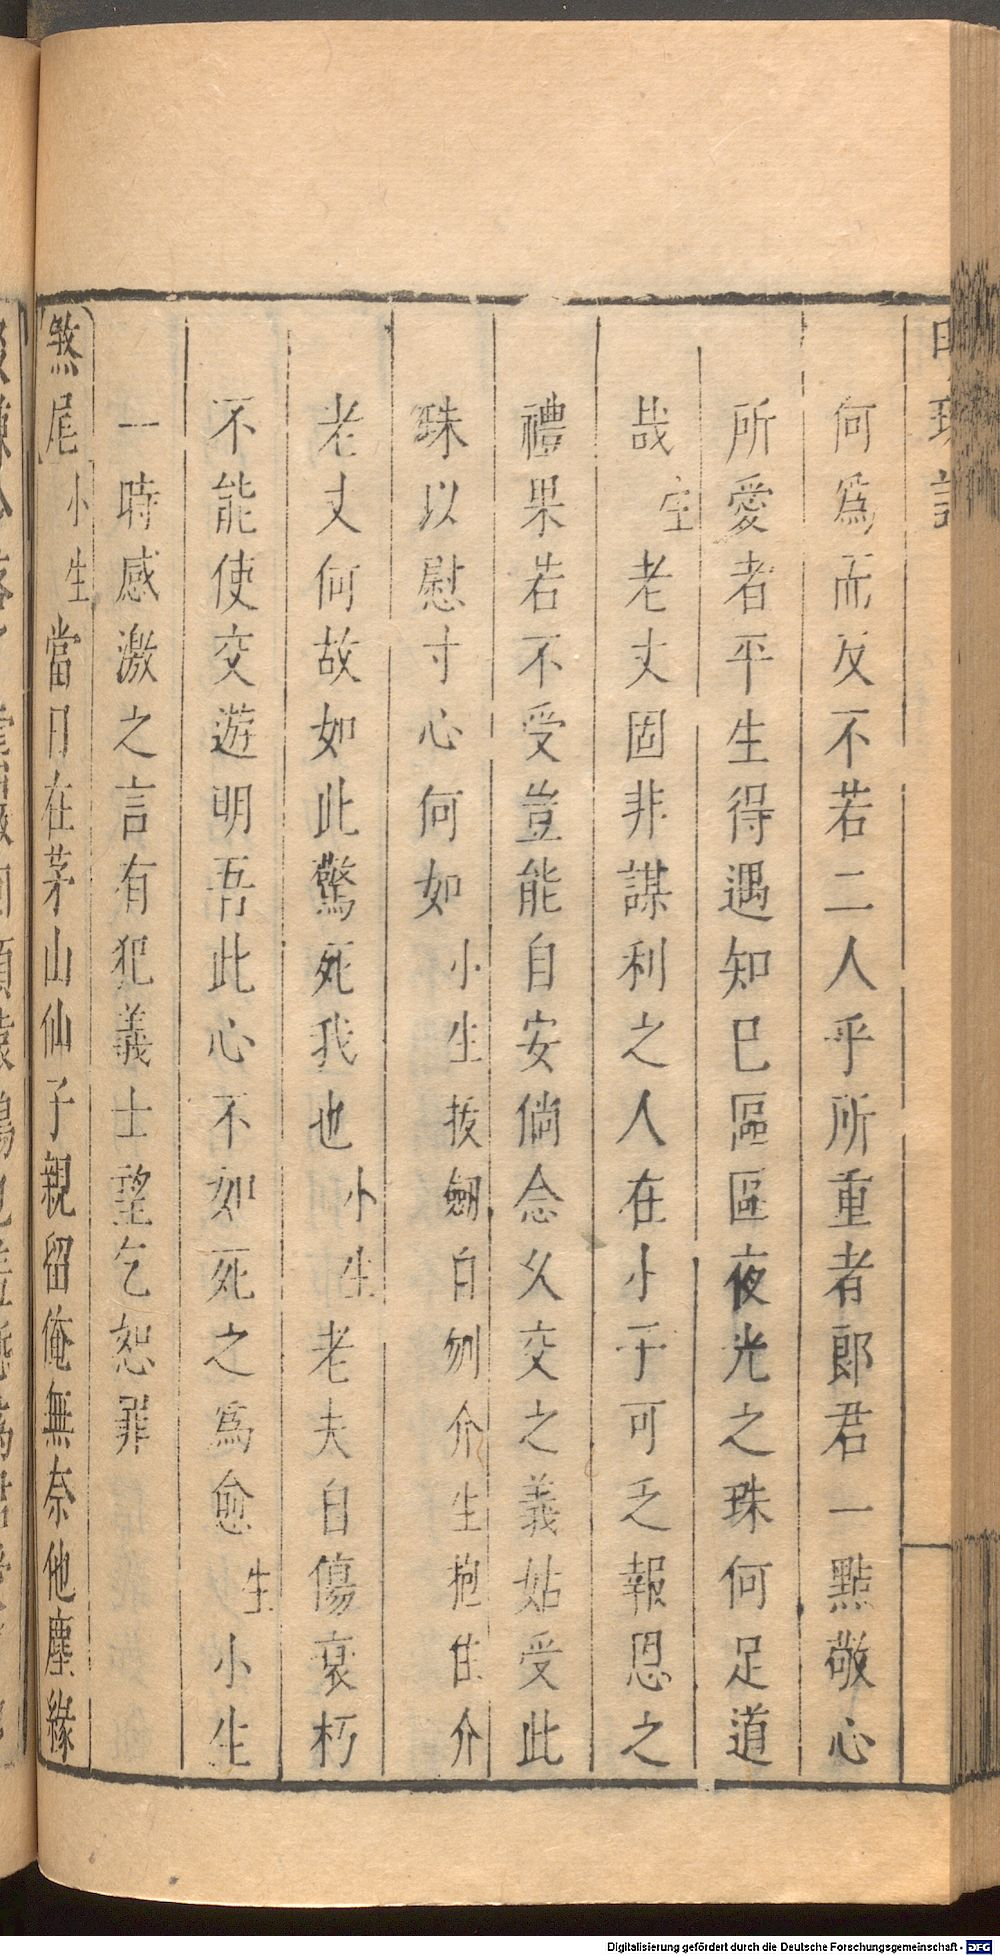 明珠記
何爲而反不若二人乎所重者郎君一㸃敬心
所愛者平生得遇知巳區區夜光之珠何足道
哉生老丈固非謀利之人在小子可乏報恩之
禮果若不受豈能自安倘念久交之義姑受此
珠以慰寸心何如小生拔劔自刎介生抱住介
老丈何故如此驚死我也小生老夫自傷衰朽
不能使交遊明吾此心不如死之爲愈生小生
一時感激之言有犯義士望乞恕罪
煞尾小生當日在茅山仙子親留俺無奈他塵緣
Digitalisierung gefördert durch die Deutsche Forschungsgemeinschaft - DFG